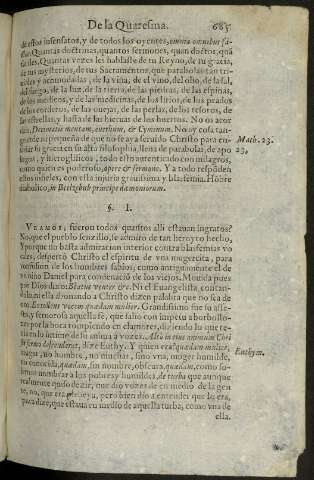 De la Quaresma. 685
destos insensatos, y de todos los oyentes, omnia omnibus fa-
Quantas doctrinas, quantos sermones, quan doctos, quã
Quantas vezes les hablaste de tu Reyno, de tu gracia,
de tus mysterios, de tus Sacramentos, que parabolas tan tri-
uiales y acomodadas, de la vina, de el vino, del olio, de la sal,
del fuego, de la luz, de la tierra, de las piedras, de las espinas,
de los medicos, y de las medicinas, de los lirios, de los prados
de los corderos, de las ouejas, de las perlas, de los tesoros, de
las estrellas, y hasta de las hieruas de los huertos. No os acor
dais, Decimatis mentam, anethum, & Cyminum. No ay cosa tan
grande ni pequeña de que no se aya seruido Christo para en-
señar su gracia con su alta filosophia, llena de parabolas, de apo
logos, y hieroglificos, todo esto autenticado con milagros,
como quien es poderoso, opere & sermone. Y a todo respõden
estos infieles, con esta injuria grauissima y blasfemia. Hõbre
diabolico, in Beelzebub principe dæmoniorum.
Math. 23.
23.
§. I.
VEAMOS, fueron todos quantos alli estauan ingratos?
No, que el pueblo senzillo, se admiro de tan heroyco hecho,
Y porque no basta admiracion interior contra blasfemias vo
cales, desperto Christo el espiritu de vna mugercita, para
confusion de los hombres sabios, como antiguamente el de
vn niño Daniel para condenacion de los viejos. Mouida pues
por Dios dixo: Beatus venter &c. Ni el Euangelista, contan-
do
cato: Extollens vocem quædam mulier. Grandissima fue su affe-
cto, y feruorosa aquella fe, que salio con impetu a borbollo-
nes por la boca rompiendo en clamores, diziendo lo que te-
nia en lo intimo de su anima a vozes. Alto
dize Euthy. Y quien era? quædam mulier,
muger, no hombre, no muchas, sino vna, muger humilde,
no conocida, quædam, sin nombre, obscura, quædam, como so-
lemos nombrar a los pobres y humildes, de turba que aunque
realmente
te, no, que era plebeya, pero bien dio a entender que lo era,
para dezir, que estaua en medio de aquella turba, como vna de
ella.
Euthym.